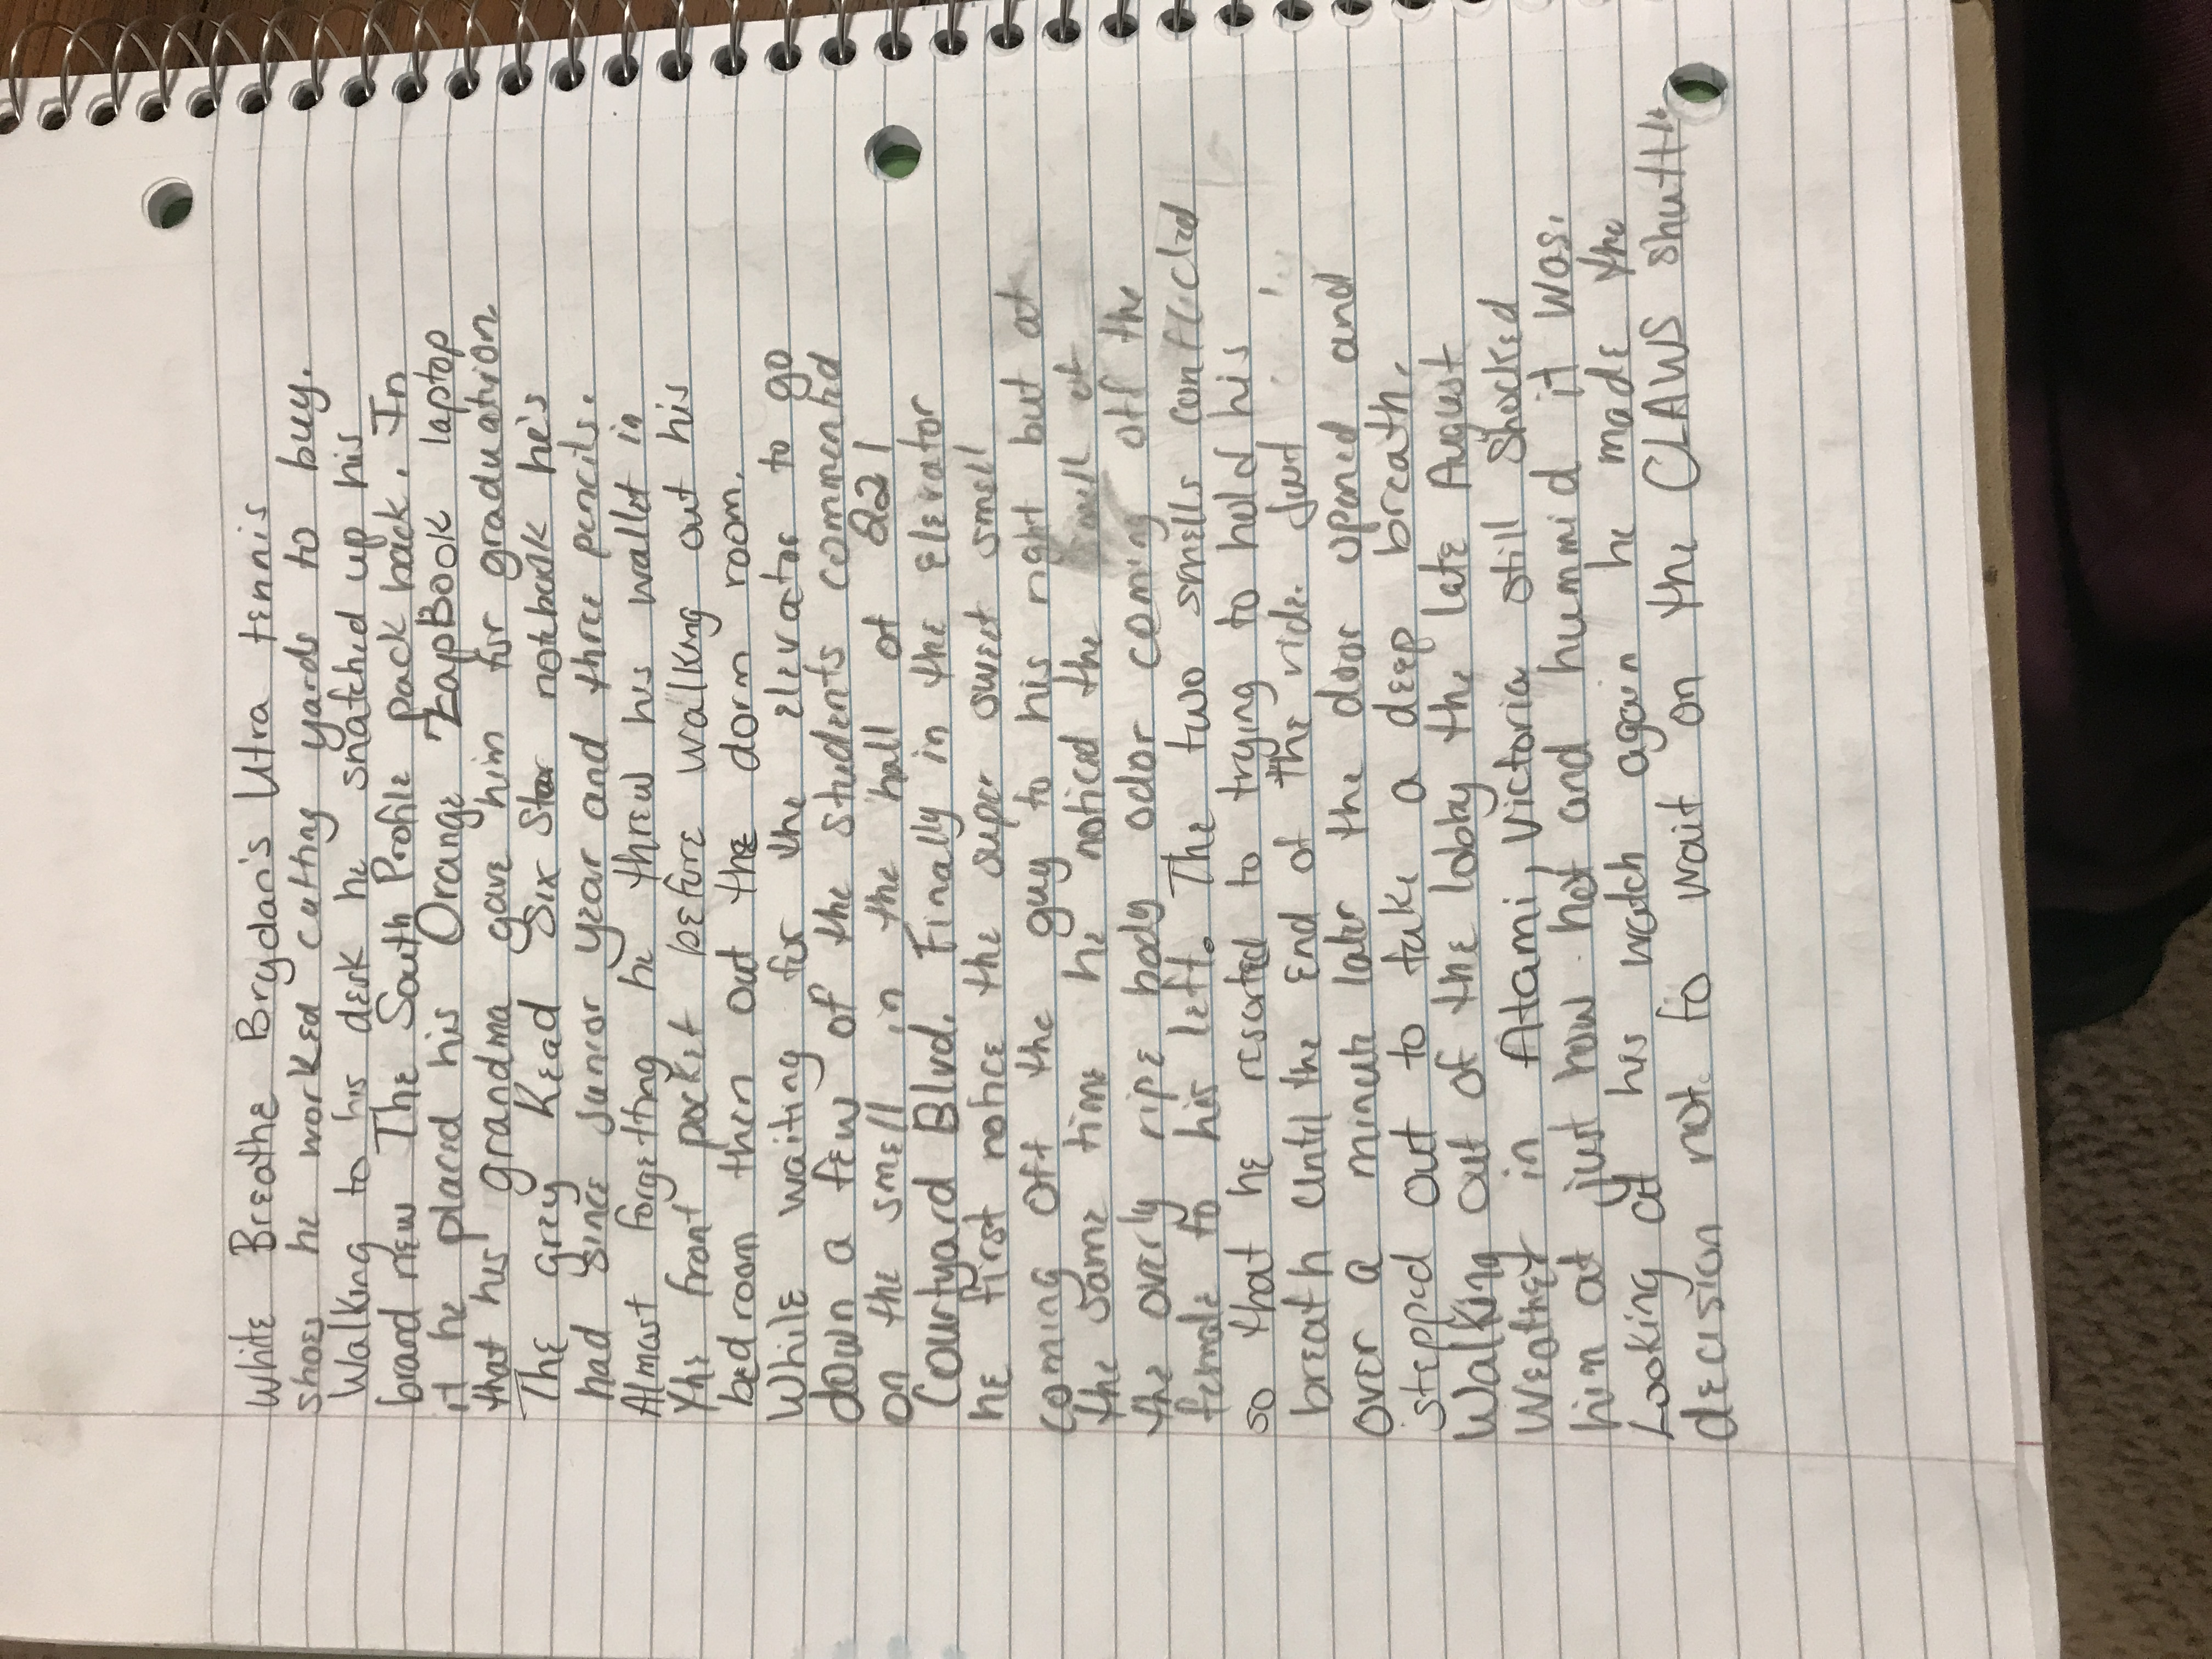 White Breathe Brydan's Utra tennis
shoes he worked cutting yards to buy.
Walking to his desk he snatched up his
brand new The South Profile pack back. In
it he placed his Orange ZapBook laptop
that his grandma gave him for graduation
The grey Kead Six Star notebook he's
had since junior year and three pencils.
Almost forgetting he threw his wallet in
the front pocket before walking out his
bedroom then out the dorm room.
While waiting for the elevator to go
down a few of the students commented
on the smell in the hall of 221
Courtyard Blvd. Finally in the elevator
he first notice the super sweet smell
coming off the guy to his right but at
the same time he noticed the smell of
the overly ripe body odor coming off the
female to his left. The two smells conflicted
so that he resorted to trying to hold his
breath until the end of the ride. Just
over a minute later the door opened and
stepped out to take a deep breath.
Walking out of the lobby the late August
Weather in Atami, Victoria still shocked
him at just how hot and hummid it was.
Looking at his watch again he made the
decision not to wait on the CLAWS shuttle